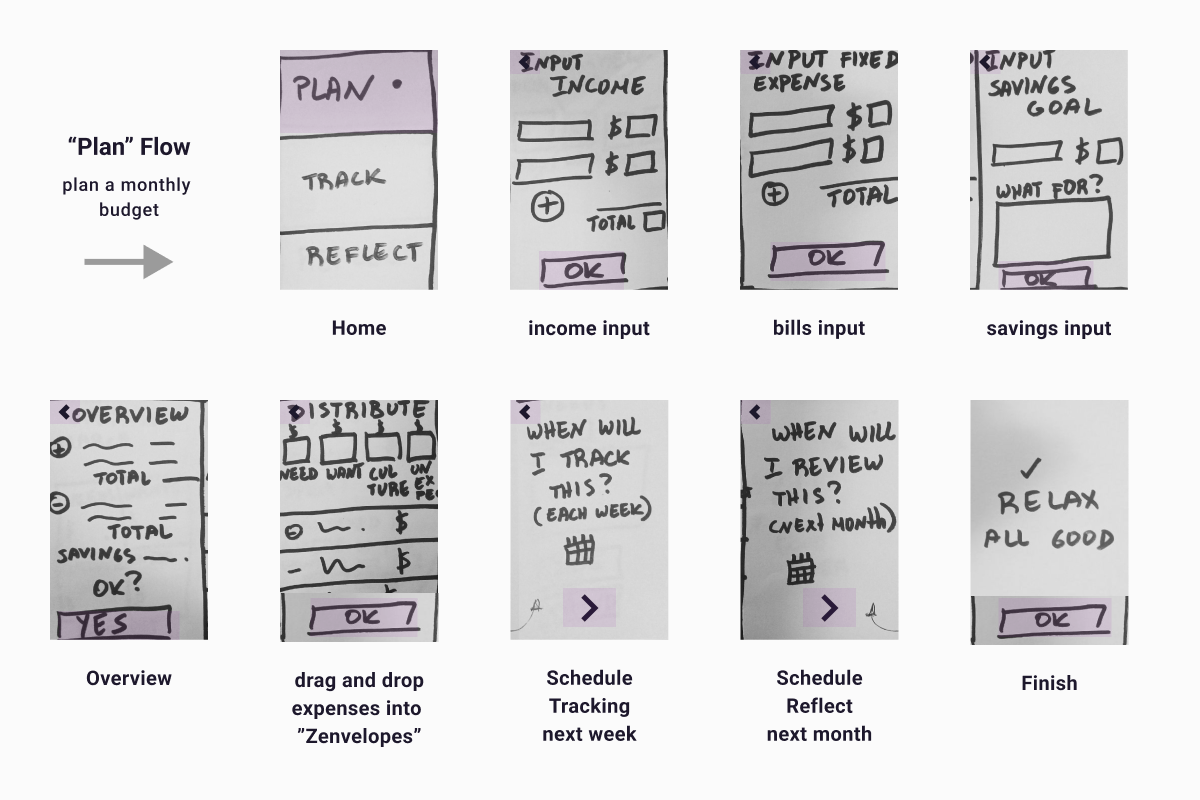 “Plan” Flow
plan a monthly
budget
PLAN
TRACK
REFLECT
Home
INPUT
INCOME
$
$
TOTAL
OK
income input
INPUT FIXED
EXPENSE
$
$
TOTAL
OK
bills input
INPUT
SAVINGS
GOAL
$
WHAT FOR?
OK
savings input
OVERVIEW
TOTAL
TOTAL
SAVINGS
OK?
YES
Overview
DISTRIBUTE
$ $ $ $
NEED WANT CUL UN
TURE EX
PEC
$
$
OK
drag and drop
expenses into
”Zenvelopes”
WHEN WILL
I TRACK
THIS?
(EACH WEEK)
Schedule
Tracking
next week
WHEN WILL
I REVIEW
THIS?
(NEXT MONTH)
Schedule
Reflect
next month
RELAX
ALL GOOD
OK
Finish